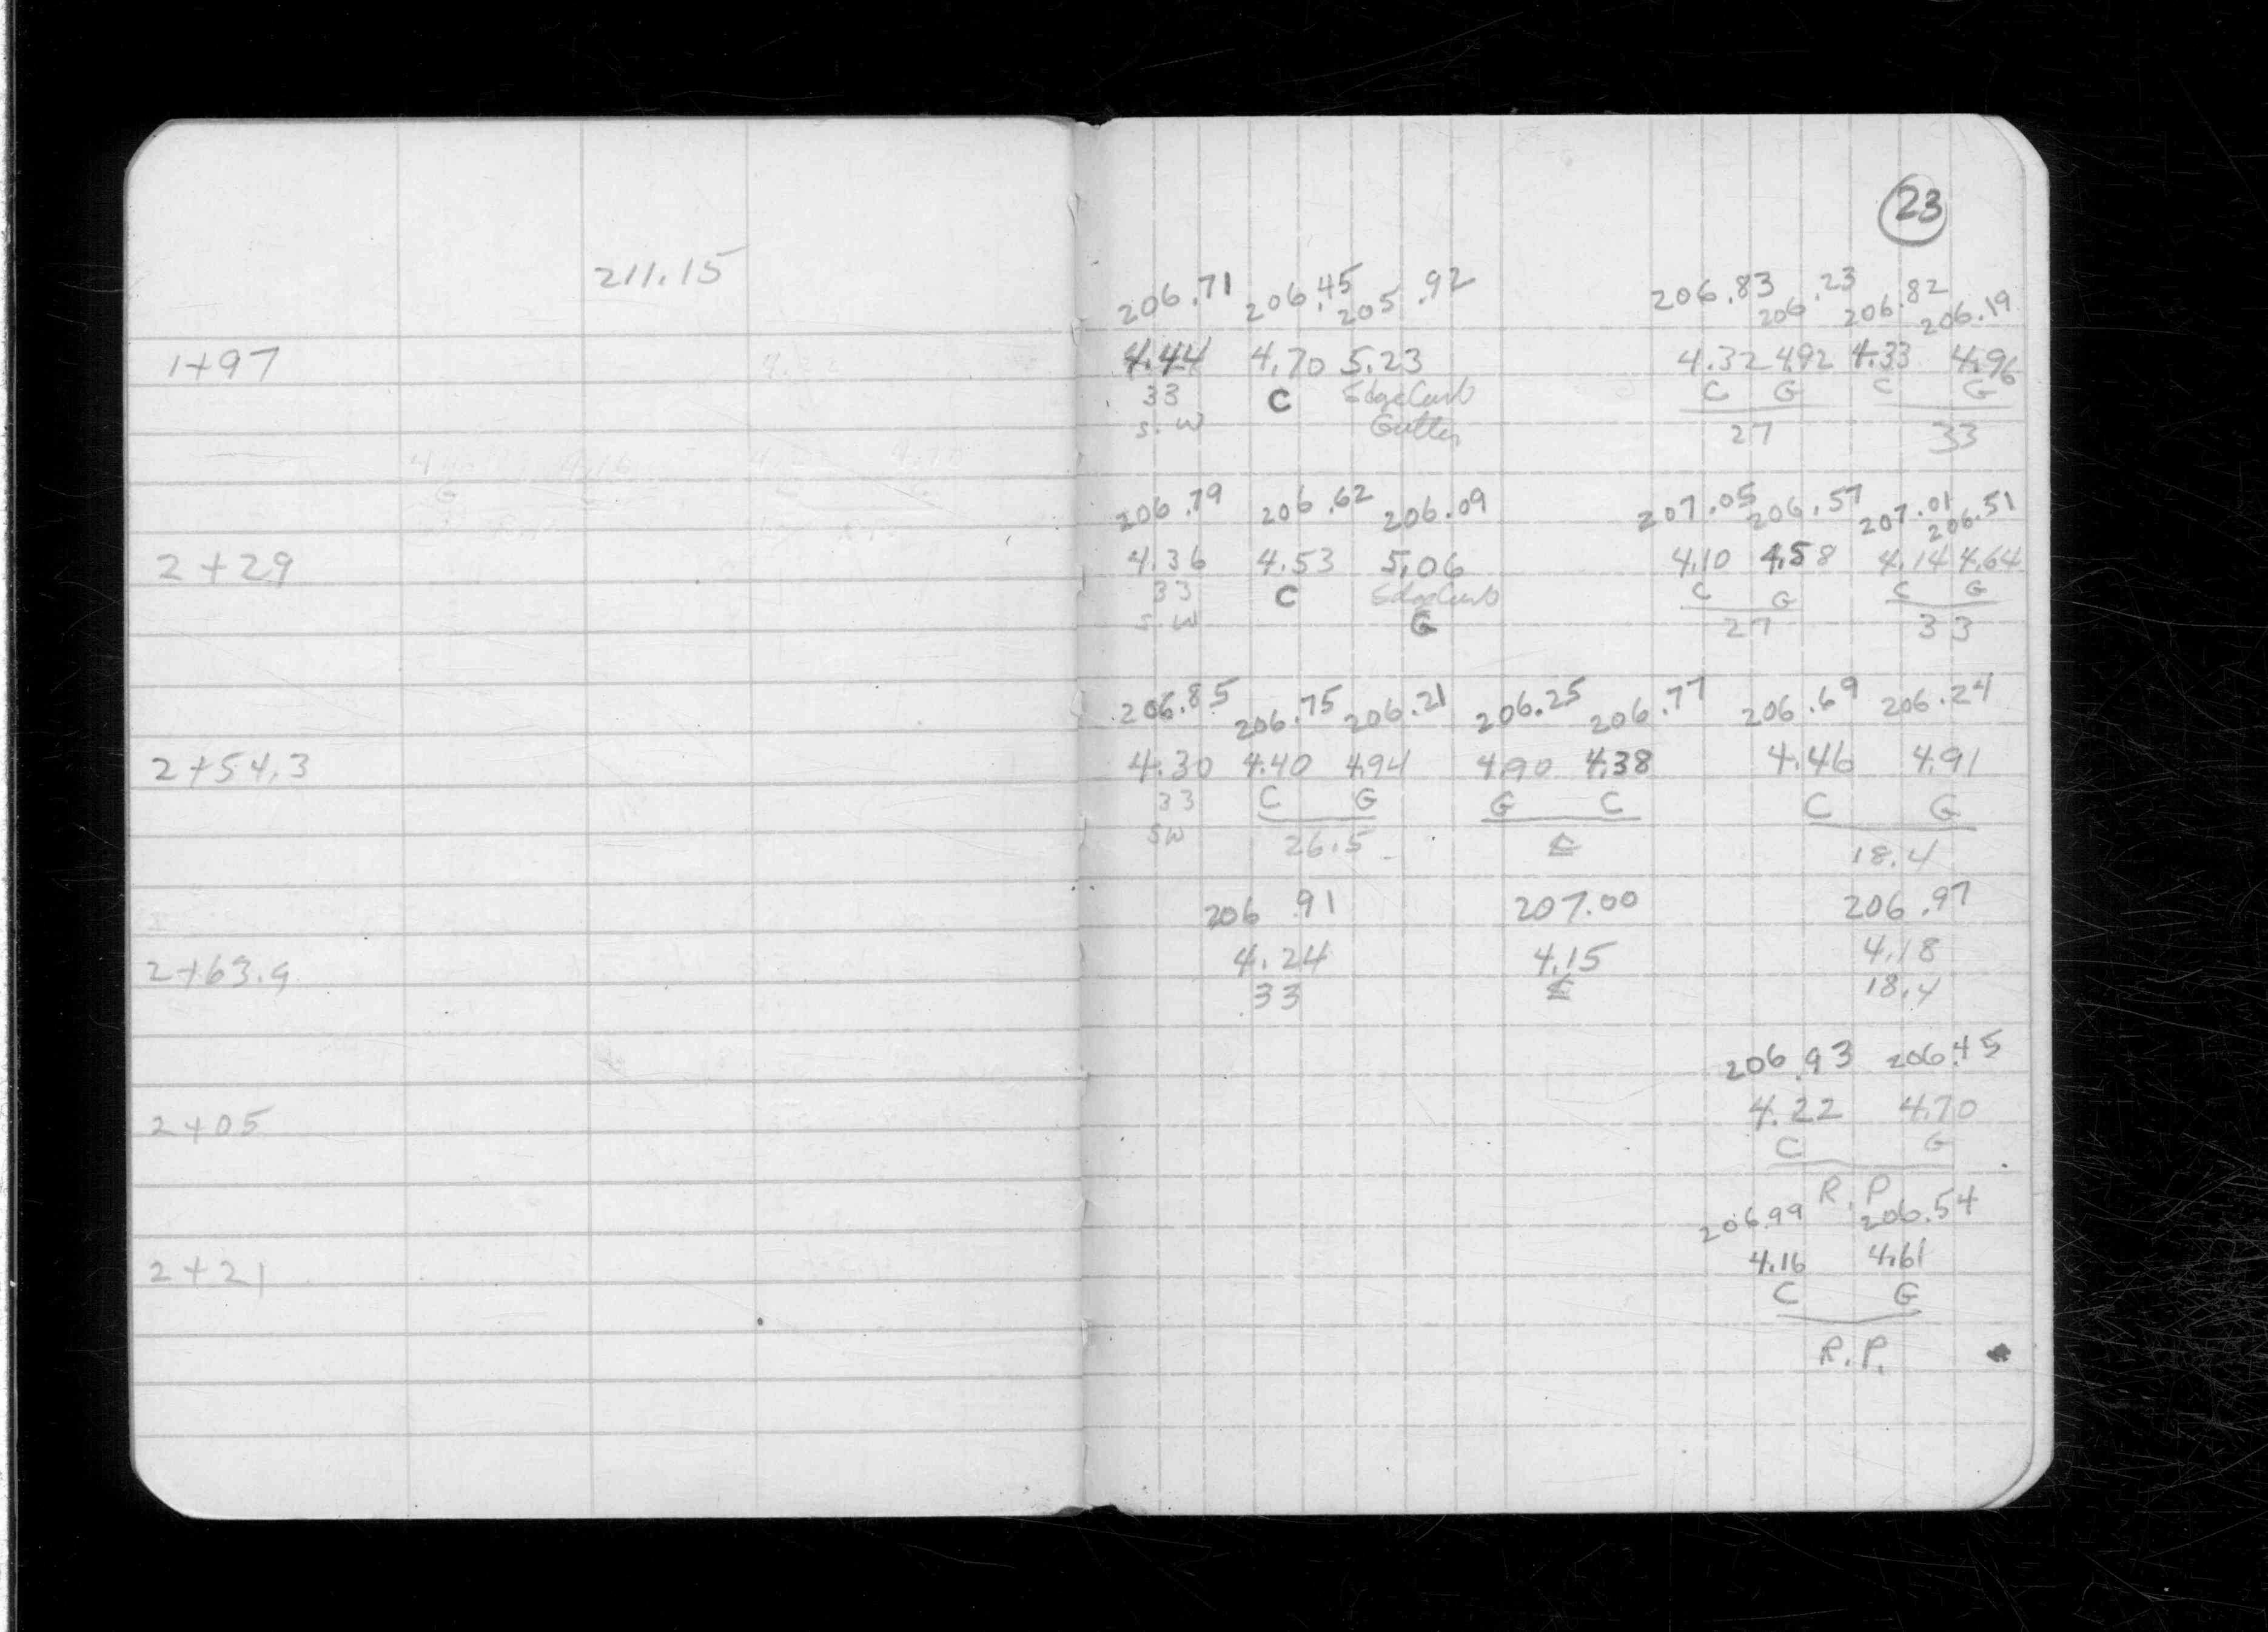 23
211.15
206.71 206.45 205.92 206.83 206.23 206.82 206.19
1+97 4.44 4.70 5.23 4.32 4.92 4.33 4.96
33 C Edge Curb C G C G
S.W Gutter 27 33
206.79 206.62 206.09 207.05 206.57 207.01 206.51
2+29 4.36 4.53 5.06 4.10 4.58 4.14 4.64
33 C Edge Curb C G C G
S.W G 27 33
206.85 206.75 206.21 206.25 206.77 206.69 206.24
2+54.3 4.30 4.40 4.94 4.90 4.38 4.46 4.91
33 C G G C C G
SW 26.5 ℄ 18.4
206.91 207.00 206.97
2+63.9 4.24 4.15 4.18
33 ℄ 18.4
206.93 206.45
2+05 4.22 4.70
C G
R.P
206.99 206.54
2+21 4.16 4.61
C G
R.P.